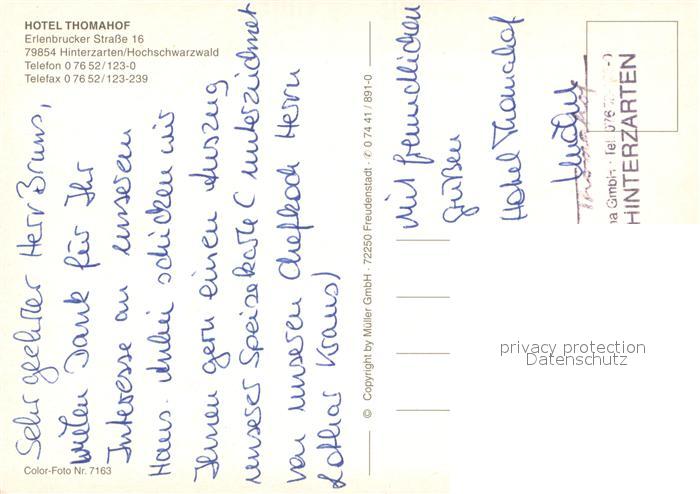 HOTEL THOMAHOF
Erlenbrucker Straße 16
79854 Hinterzarten/Hochschwarzwald
Telefon 0 76 52/123-0
Telefax 0 76 52/123-239
Sehr geehrter Herr Bruns,
vielen Dank für Ihr
Interesse an unserem
Haus. Anbei schicken wir
Ihnen gern einen Auszug
unserer Speisekarte (unterzeichnet
von unseren Chefkoch Herrn
Lothar Kraus)
Color-Foto Nr. 7163
© Copyright by Müller GmbH · 72250 Freudenstadt · ✆ 0 74 41 / 891-0
Mit freundlichen
Grüßen
Hotel Thomahof
Thomahof
GmbH · Tel. 076
HINTERZARTEN
privacy protection
Datenschutz